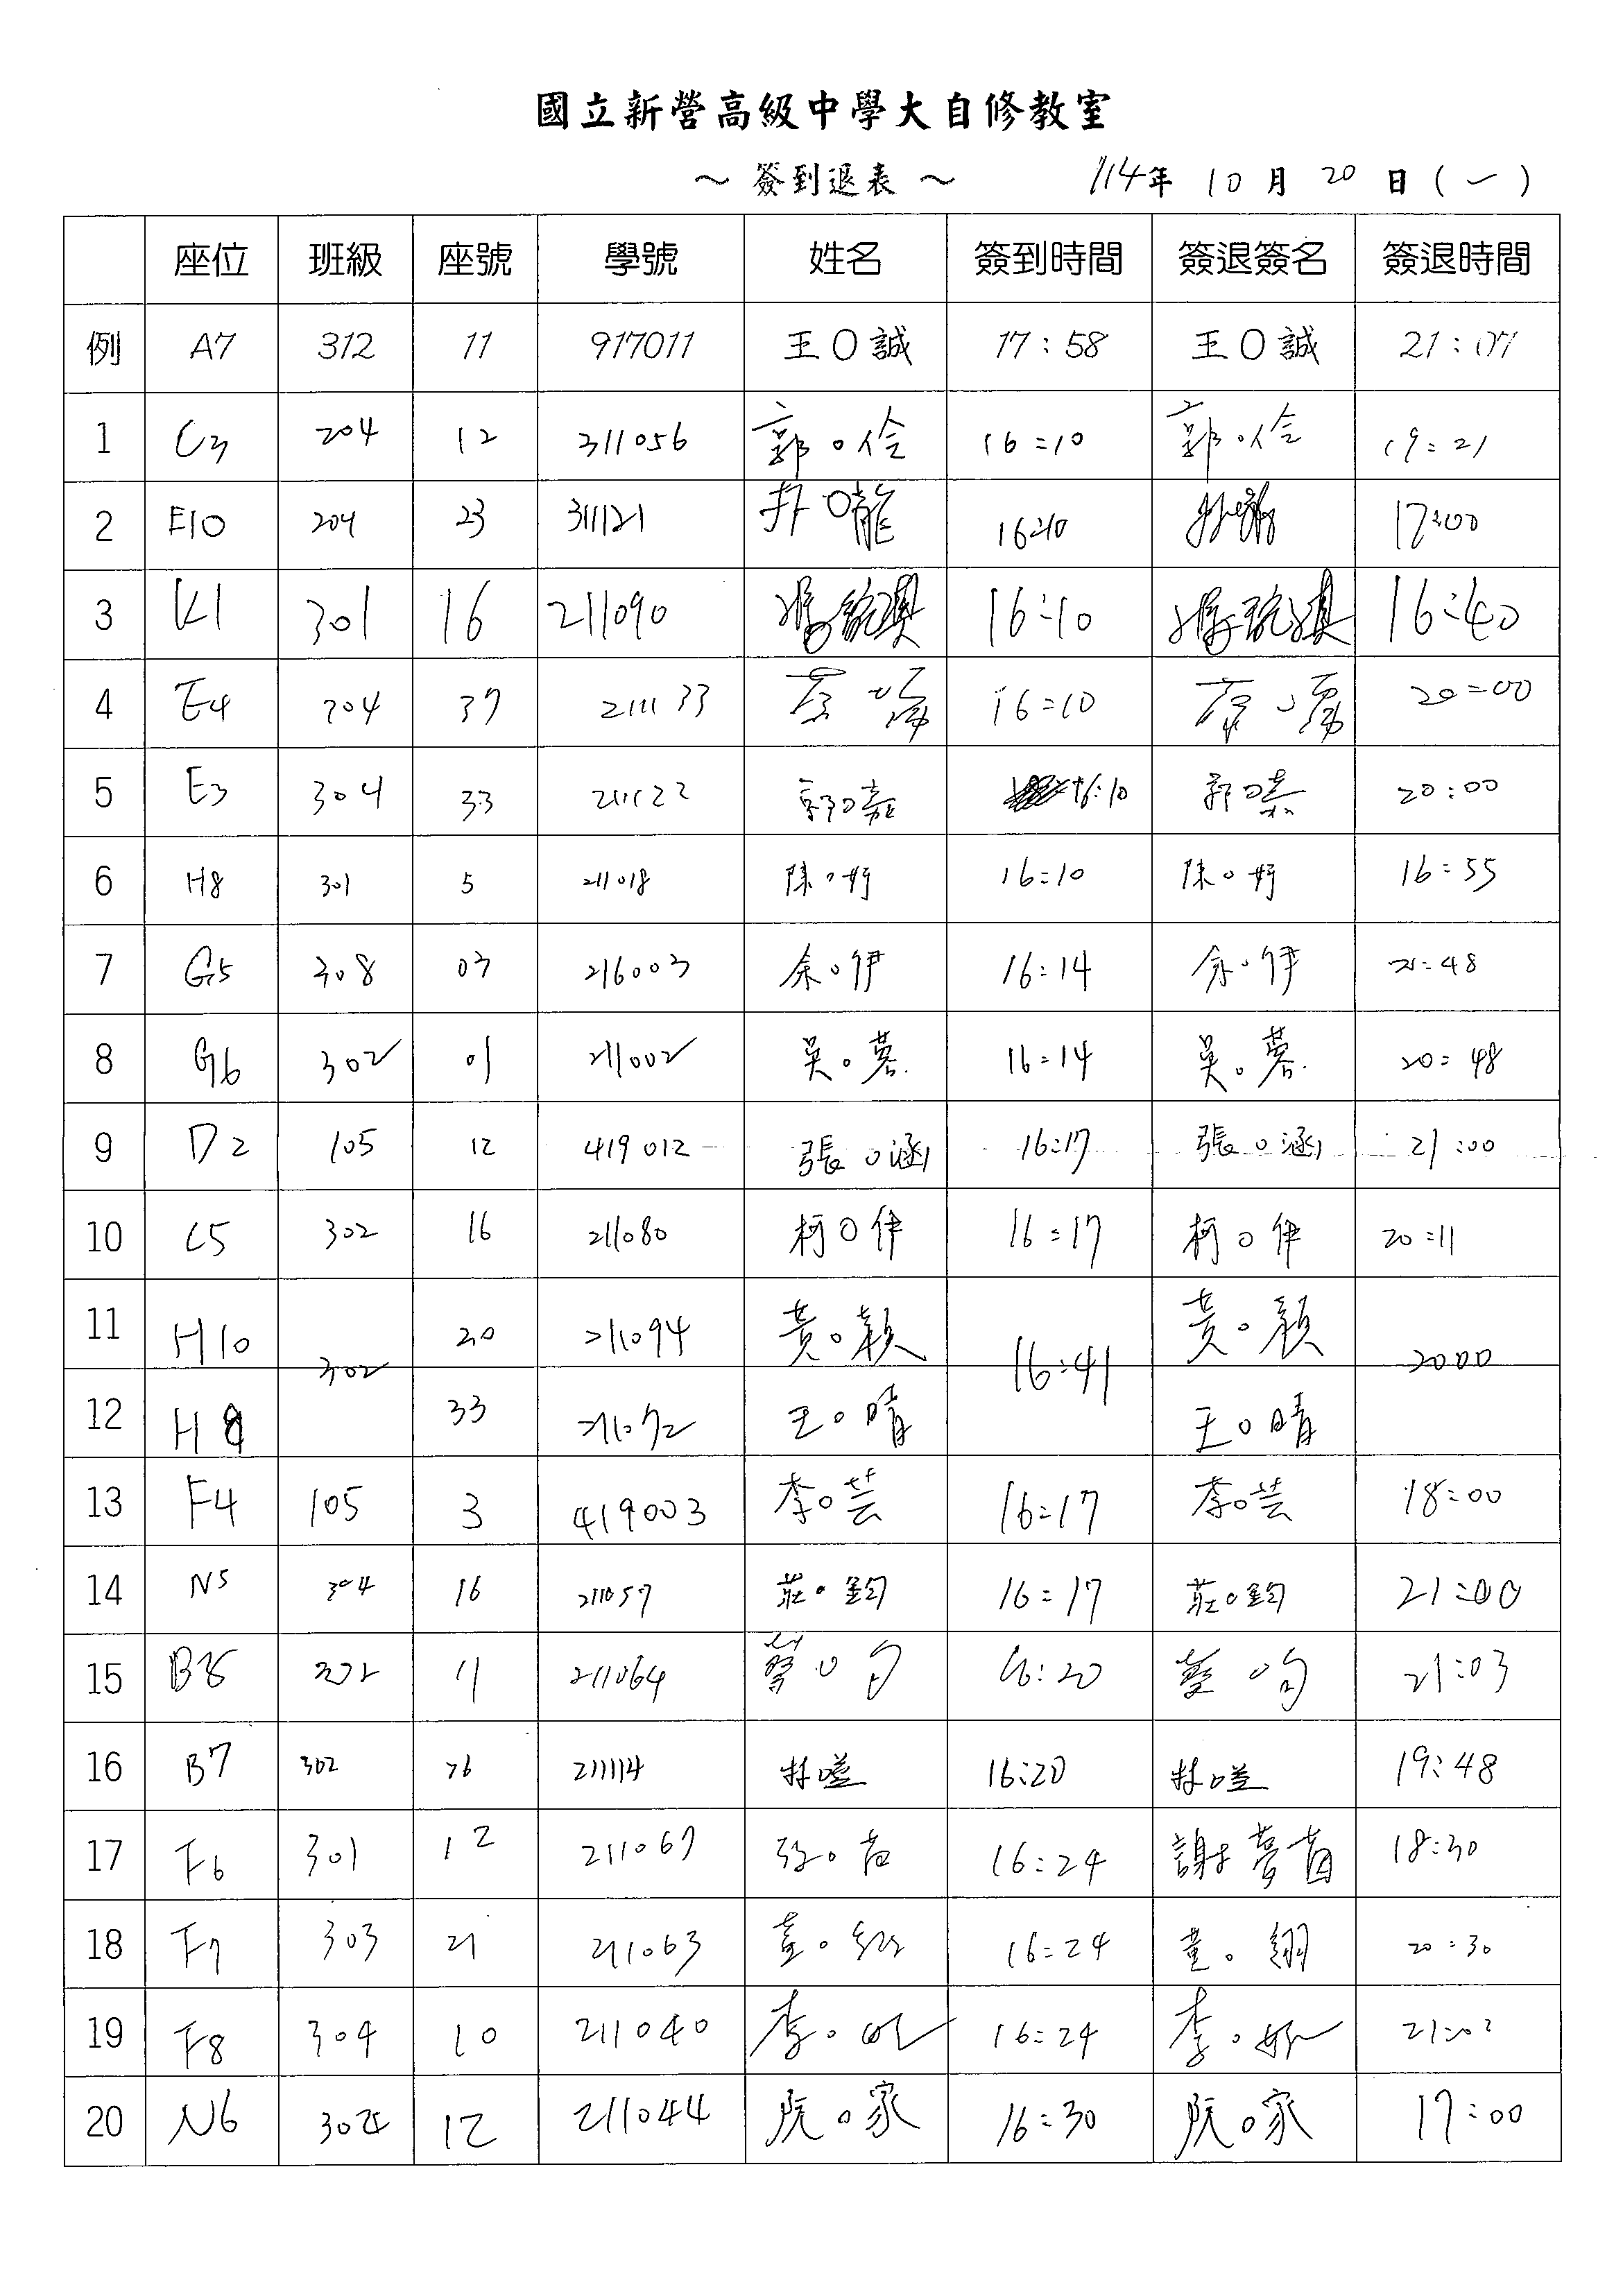 國立新營高級中學大自修教室
～ 簽到退表 ～ 114年 10 月 20 日 ( 一 )
座位 班級 座號 學號 姓名 簽到時間 簽退簽名 簽退時間
例 A7 312 11 917011 王O誠 17:58 王O誠 21:07
1 C3 204 12 311056 郭○伶 16:10 郭○伶 19:21
2 E10 204 23 311121 16:10 17:00
3 K1 301 16 211090 16:10 16:40
4 E4 304 37 211133 16:10 20:00
5 E3 304 33 211122 郭○嘉 16:10 郭○嘉 20:00
6 H8 301 5 211018 陳○妤 16:10 陳○妤 16:55
7 G5 308 03 216003 余○伊 16:14 余○伊 21:48
8 G6 302 01 211002 吳○蓁 16:14 吳○蓁 20:48
9 D2 105 12 419012 張○涵 16:17 張○涵 21:00
10 C5 302 16 211080 柯○伊 16:17 柯○伊 20:11
11 H10 302 20 211094 黃○穎 16:41 黃○穎 2000
12 H9 33 211072 王○晴 王○晴
13 F4 105 3 419003 李○芸 16:17 李○芸 18:00
14 N5 304 16 211057 莊○鈞 16:17 莊○鈞 21:00
15 B8 302 11 211064 蔡○ 16:20 蔡○ 21:03
16 B7 302 26 211114 林○ 16:20 林○ 19:48
17 F6 301 12 211067 16:24 謝 18:30
18 F7 303 21 211063 童○翎 16:24 童○翎 20:30
19 F8 304 10 211040 李○ 16:24 李○ 21:02
20 N6 304 12 211044 阮○家 16:30 阮○家 17:00